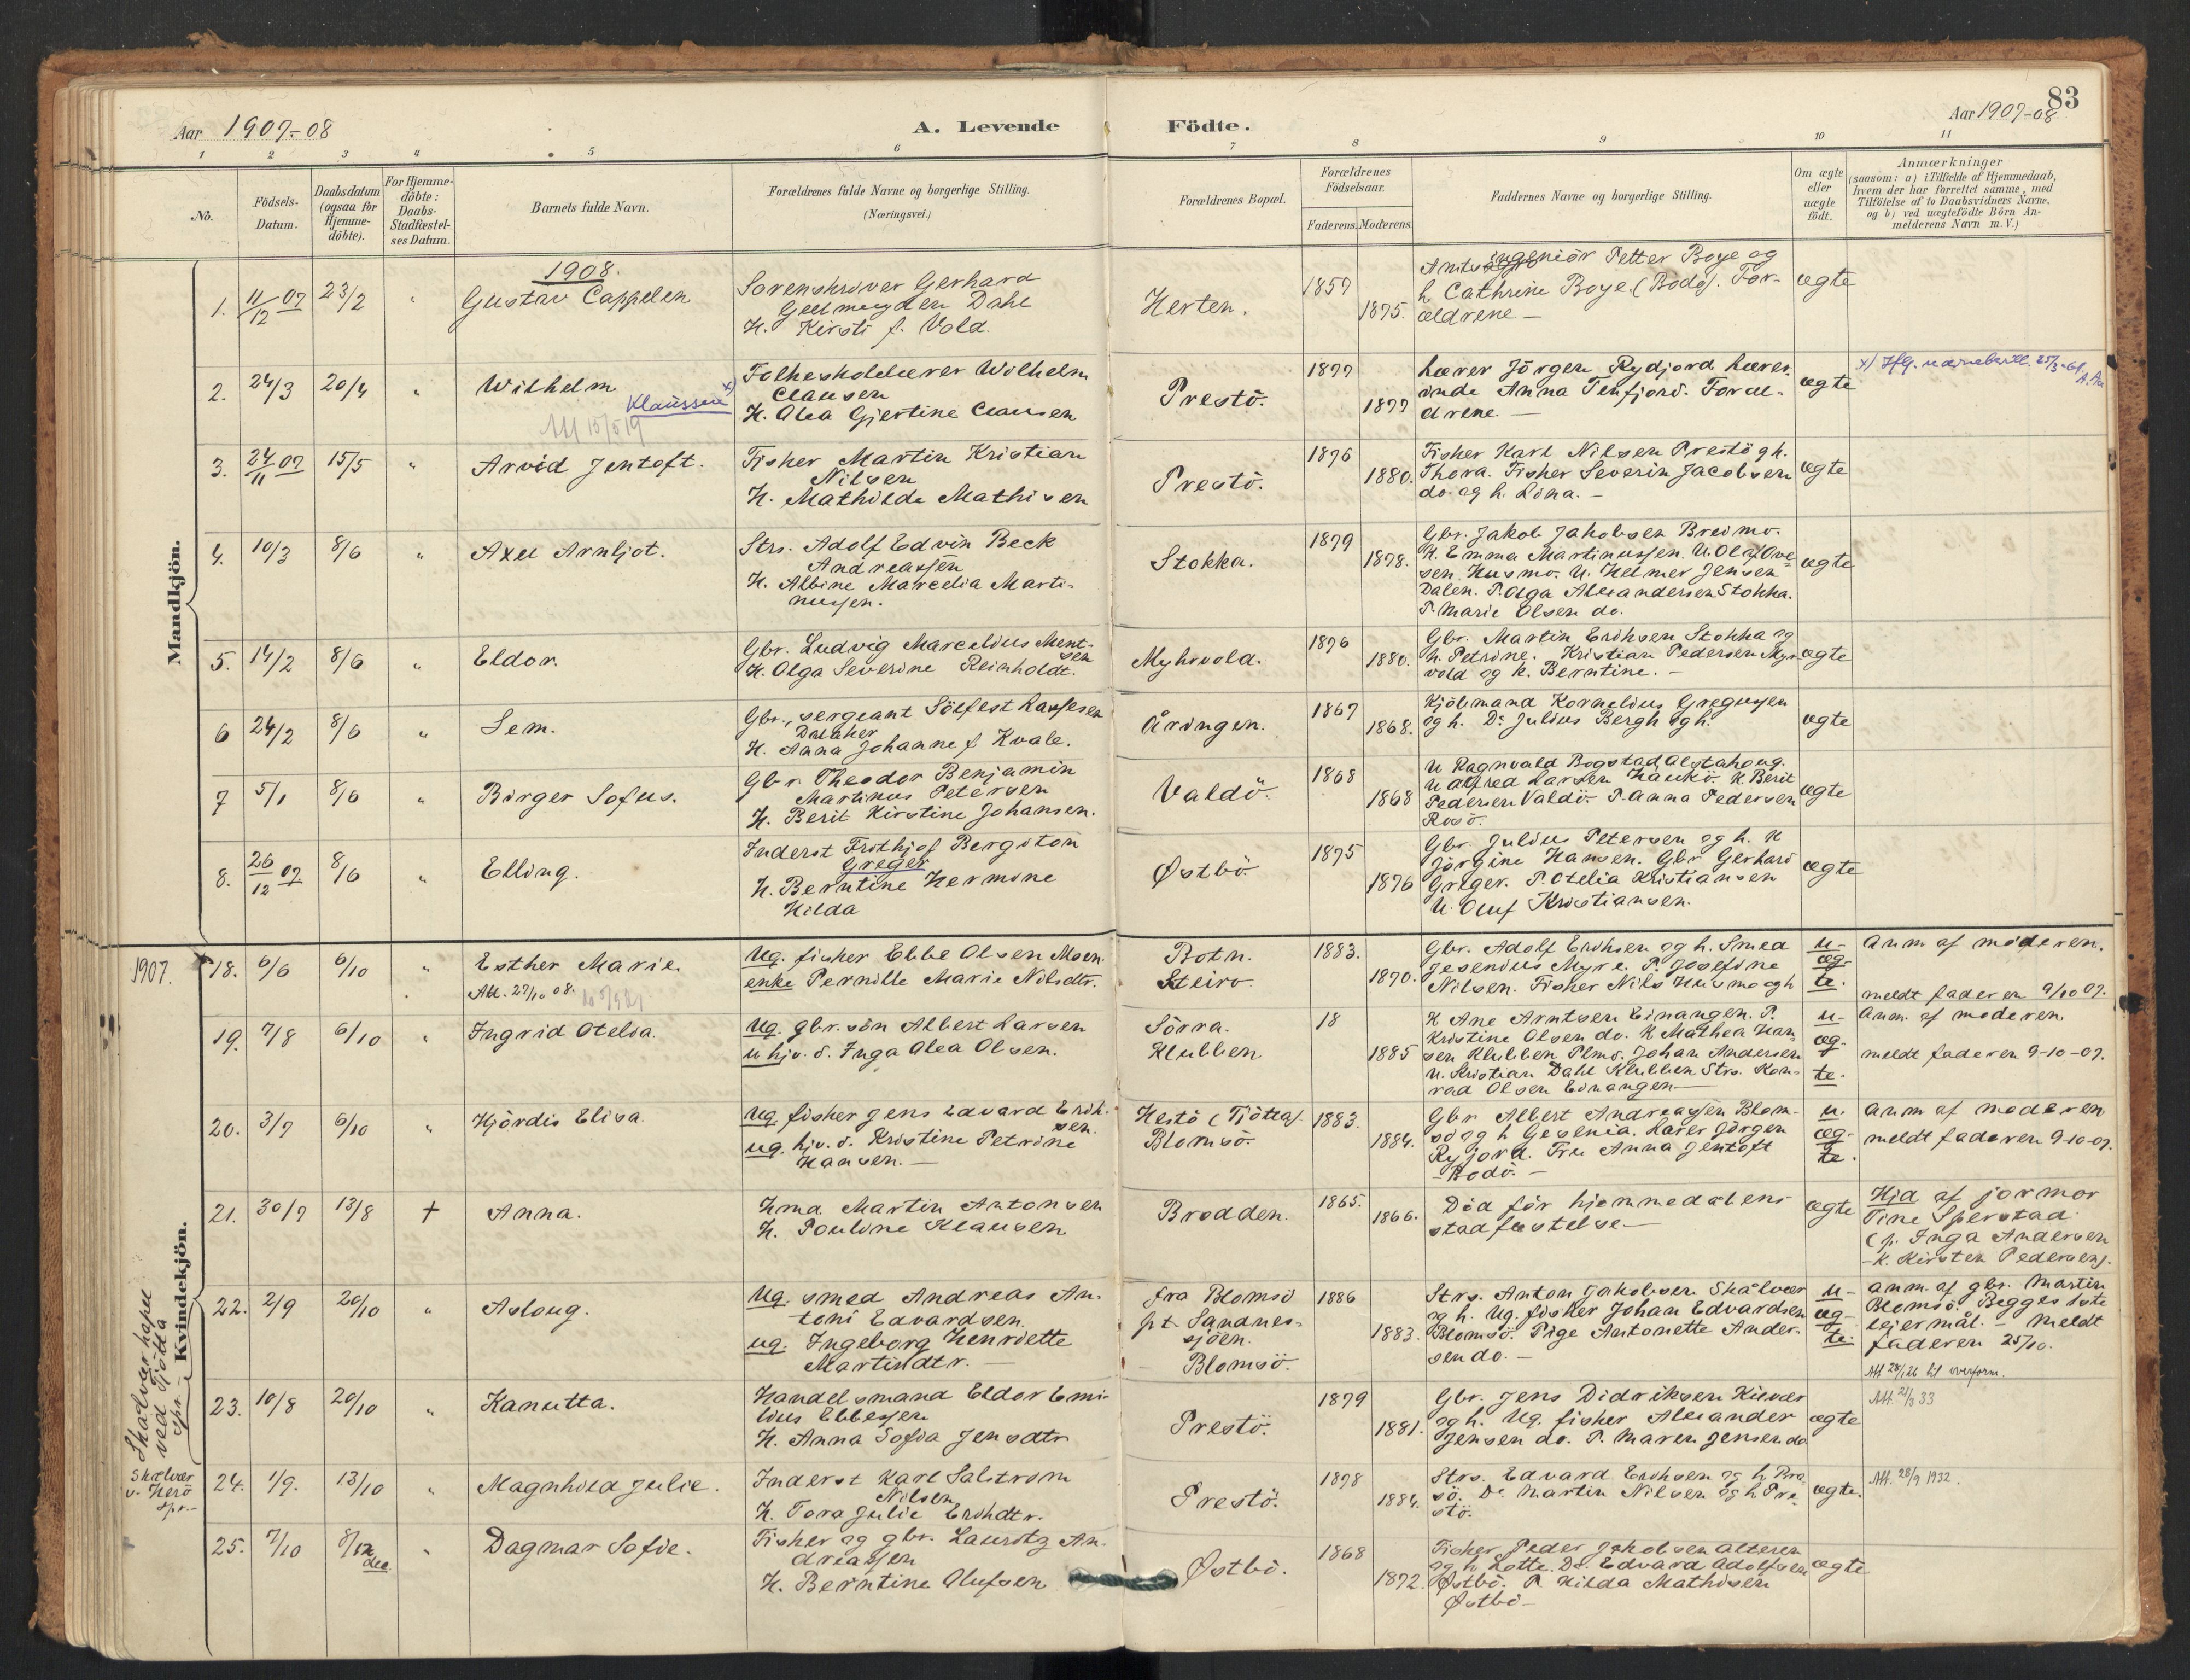 83
Aar 1907-08
A. Levende Födte.
Aar 1907-08
1 2 3 4 5 6 7 8 9 10 11
No.
Födsels-
Datum.
Daabsdatum
(ogsaa for
Hjemme-
döbte).
For Hjemme-
döbte:
Daabs-
Stadfæstel-
ses Datum.
Barnets fulde Navn.
Forældrenes fulde Navne og borgerlige Stilling.
(Næringsvei.)
Forældrenes Bopæl.
Forældrenes
Födselsaar.
Faderens. Moderens.
Faddernes Navne og borgerlige Stilling.
Om ægte
eller
uægte
födt.
Anmærkninger
(saasom: a) i Tilfælde af Hjemmedaab,
hvem der har forrettet samme, med
Tilföielse af to Daabsvidners Navne,
og b) ved uægtefödte Börn An-
melderens Navn m.V.)
Mandkjön.
1908.
1. 11/12 07 23/2 "
Gustav Cappelen
Sorenskriver Gerhard
Geelmuyden Dahl
H. Kirsti f. Vold.
Herten.
1857
1875.
Amtsingeniör Petter Boye og
h. Cathrine Boye (Bodö). For-
ældrene —
ægte
2. 24/3 20/4 "
Wilhelm
Klaussen x)
Att 15/5 19
Folkeskolelærer Wilhelm
Clausen
H. Olea Gjertine Clausen
Prestö.
1877
1877
Lærer Jörgen Rydjord Lærer-
inde Anna Tenfjord. Foræl-
drene. —
ægte
3. 24/11 07 15/5 "
Arvid Jentoft.
Fisker Martin Kristian
Nilsen
H. Mathilde Mathisen
Prestö.
1876
1880.
Fisker Karl Nilsen Prestö og h.
Thora. Fisker Severin Jacobsen
do. og h. Lina. —
ægte
4. 10/3 8/6 "
Axel Arnljot.
Strs. Adolf Edvin Beck
Andreassen
H. Albine Marcelia Marti-
nussen.
Stokka.
1879
1878.
Gbr. Jakob Jakobsen Breimo.
K. Emma Martinussen. U. Olaf Ove-
sen Husmo. U. Helmer Jensen
Dalen. P. Olga Alexandersen Stokka.
P. Marie Olsen do.
ægte
5. 14/2 8/6 "
Eldor.
Gbr. Ludvig Marcelius Ment-
sen
H. Olga Severine Reinholdt.
Myhrvold.
1876
1880.
Gbr. Martin Eriksen Stokka og
h. Petrine. Kristian Pedersen Myr-
vold og k. Berntine. —
ægte
6 24/2 8/6 "
Sem.
Gbr., sergeant Sölfest Lassesen
Dalaker
H. Anna Johanne f. Kvale.
Åringen.
1867
1868.
Kjöbmand Kornelius Gregussen
og h. Do. Julius Bergh og h.
ægte
7 5/1 8/6 "
Birger Sofus.
Gbr. Theodor Benjamin
Martinus Petersen
H. Berit Kirstine Johansen.
Valdö.
1868
1868
U Ragnvald Bogstad Alstahoug.
U Alfred Larsen Haukö. K. Berit
Pedersen Valdö. P. Anna Pedersen
Rosö.
ægte
8. 26/12 07 8/6 "
Elling.
Inderst Frithjof Bergiton
Greger
H. Berntine Hermine
Hilda
Østbö
1875
1876
Gbr. Julius Petersen og h. K
Jörgine Hansen. Gbr Gerhard
Greger. P. Otelia Kristiansen
U. Oluf Kristiansen.
ægte
1907.
Kvindekjön.
Skålvær kapel
ved Tjötta
spr. —
18. 6/6 6/10 "
Esther Marie.
Att. 27/10 08.
Ug. fisker Ebbe Olsen Moen.
enke Pernille Marie Nilsdtr.
Botn.
Steiro
1883.
1870.
Gbr. Adolf Eriksen og h. Smed
Jesenius Myre. P. Josefine
Nilsen. Fisker Nils Husmo og h
u-
æg-
te.
anm. af moderen.
meldt faderen 9/10 07.
19. 7/8 6/10 "
Ingrid Otelia.
Ug. gbr. sön Albert Larsen
u hjv. d. Inga Alea Olsen.
Sörra.
Klubben
18
1885
K Ane Arntsen Einangen. P.
Kristine Olsen do. K Mathea Han-
sen Klubben Plmd. Johan Andersen
U. Kristian Dahl Klubben Strs. Kon-
rad Olsen Einangen —
u-
æg-
te.
anm. af moderen
meldt faderen 9-10-07.
20. 3/7 6/10 "
Hjördis Elisa.
Ug. fisker Jens Edvard Erik-
sen.
ug. hjv. d. Kristine Petrine
Hansen. —
Hestö (Tjötta)
Blomsö.
1883.
1884.
Gbr Albert Andreassen Blom-
sö og h Gesenia. Lærer Jörgen
Ryjord. Fru Anna Jentoft
Bodö. —
u-
æg-
te.
anm af moderen
meldt faderen 9-10-07.
21. 30/7 13/8 +
Anna.
Hma Martin Antonsen
H. Pouline Klausen
Brodden.
1865.
1866.
Död för hjemmedåbens
stadfæstelse —
ægte
Hjd af jormor
Tine Sperstad
(p. Inga Andersen
– k. Kirsten Pedersen).
22. 2/9 20/10 "
Asloug.
Ug. smed Andreas An-
toni Edvardsen.
ug. Ingeborg Henriette
Martindtr. —
fra Blomsö
pt Sandnes-
sjöen.
Blomsö.
1886
1883.
Strs. Anton Jakobsen Skålvær
og h. Ug. fisker Johan Edvardsen
Blomsö. Pige Antonette Ander-
sen do. —
u-
æg-
te.
anm. af gbr. Martin
Blomsö. Begges 1ste
lejermål. – Meldt
faderen 25/10.
Att 28/1 26 til overform.
23. 10/8 20/10 "
Kanutta.
Handelsmand Eldor Emi-
lius Ebbesen
H. Anna Sofia Jensdtr
Prestö.
1879
1881.
Gbr. Jens Didriksen Kilvær
og h. Ug. fisker Alexander
Jensen do. P. Maren Jensen do
ægte
Att. 21/3 33
Skålvær
v. Herö
spr. —
24. 1/9. 13/10 "
Magnhild Julie.
Inderst Karl Salstrøm
Nilsen
H. Tora Julie Erikdtr.
Prestö.
1878
1884.
Strs. Edvard Eriksen og h. Pre
sö. Do Martin Nilsen og h. Pre-
stö.
ægte.
Att. 28/9 1932.
25. 7/10 8/12 "
dec.
Dagmar Sofie.
Fisker og gbr. Lauritz An-
dreassen
H. Berntine Olufsen
Østbö.
1868
1872.
Fisker Peder Jakobsen Alteren
og h. Lotte. Do. Edvard Adolfsen
Østbö. P. Hilda Mathisen
Østbö —
ægte